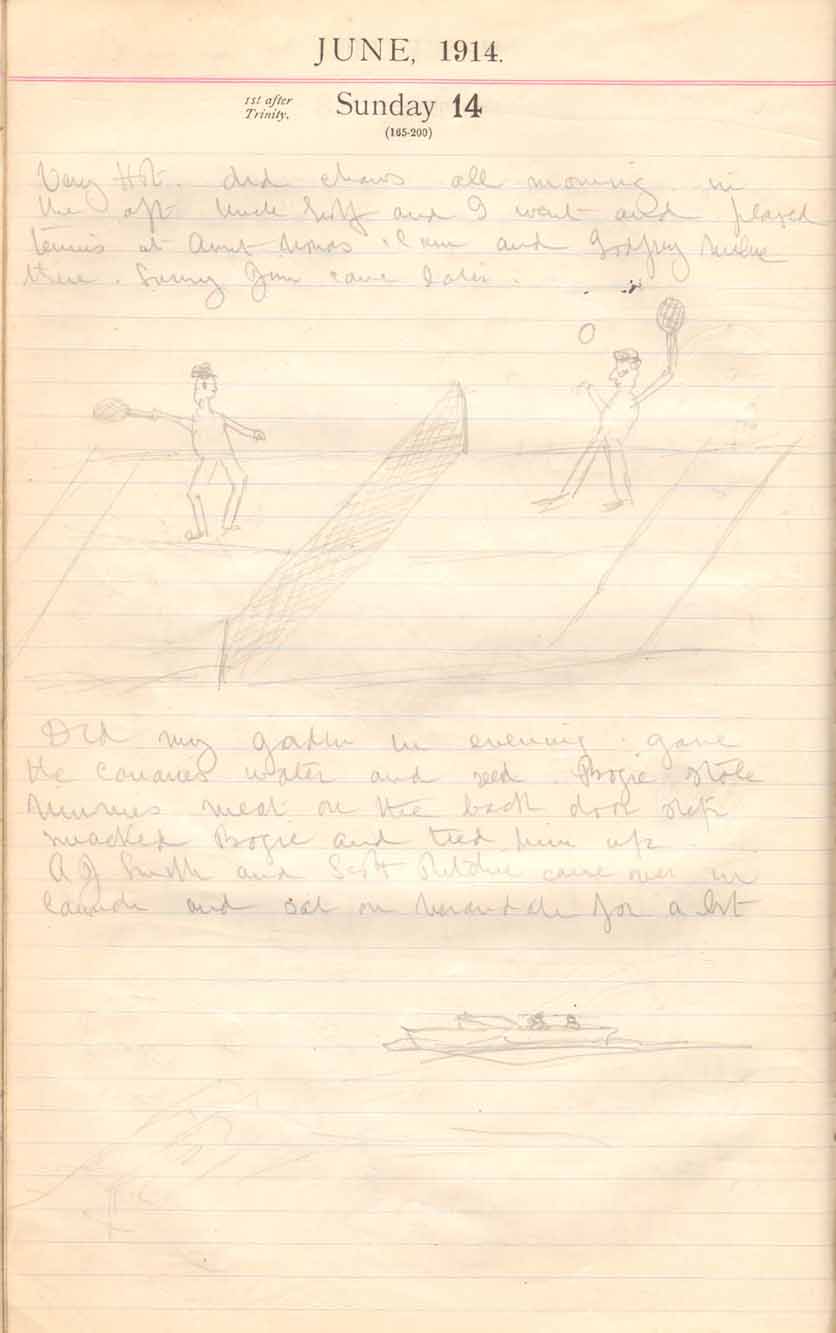 JUNE, 1914.
1st after
Trinity.
Sunday 14
(165-200)
Very Hot. did chaws all morning. in
the aft Uncle and I went and played
tennis at Aunt Nonas. and Godfrey
there. Sunny Jim came later.
Did my garden in evening. gave
the canaries water and seed. Bogie stole
meat on the back door step
smacked Bogie and tied him up.
A J Smith and Scott Ritchie came over in
launch and sat on verandah for a bit